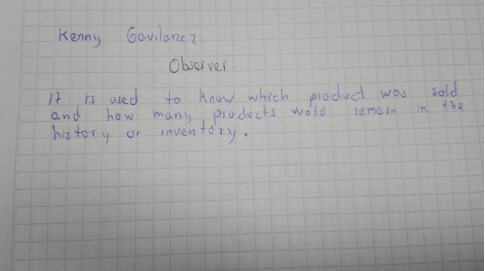 Kenny Gavilanez
Observer.
It is used to know which product was sold
and how many products wold remain in the
history or inventory.